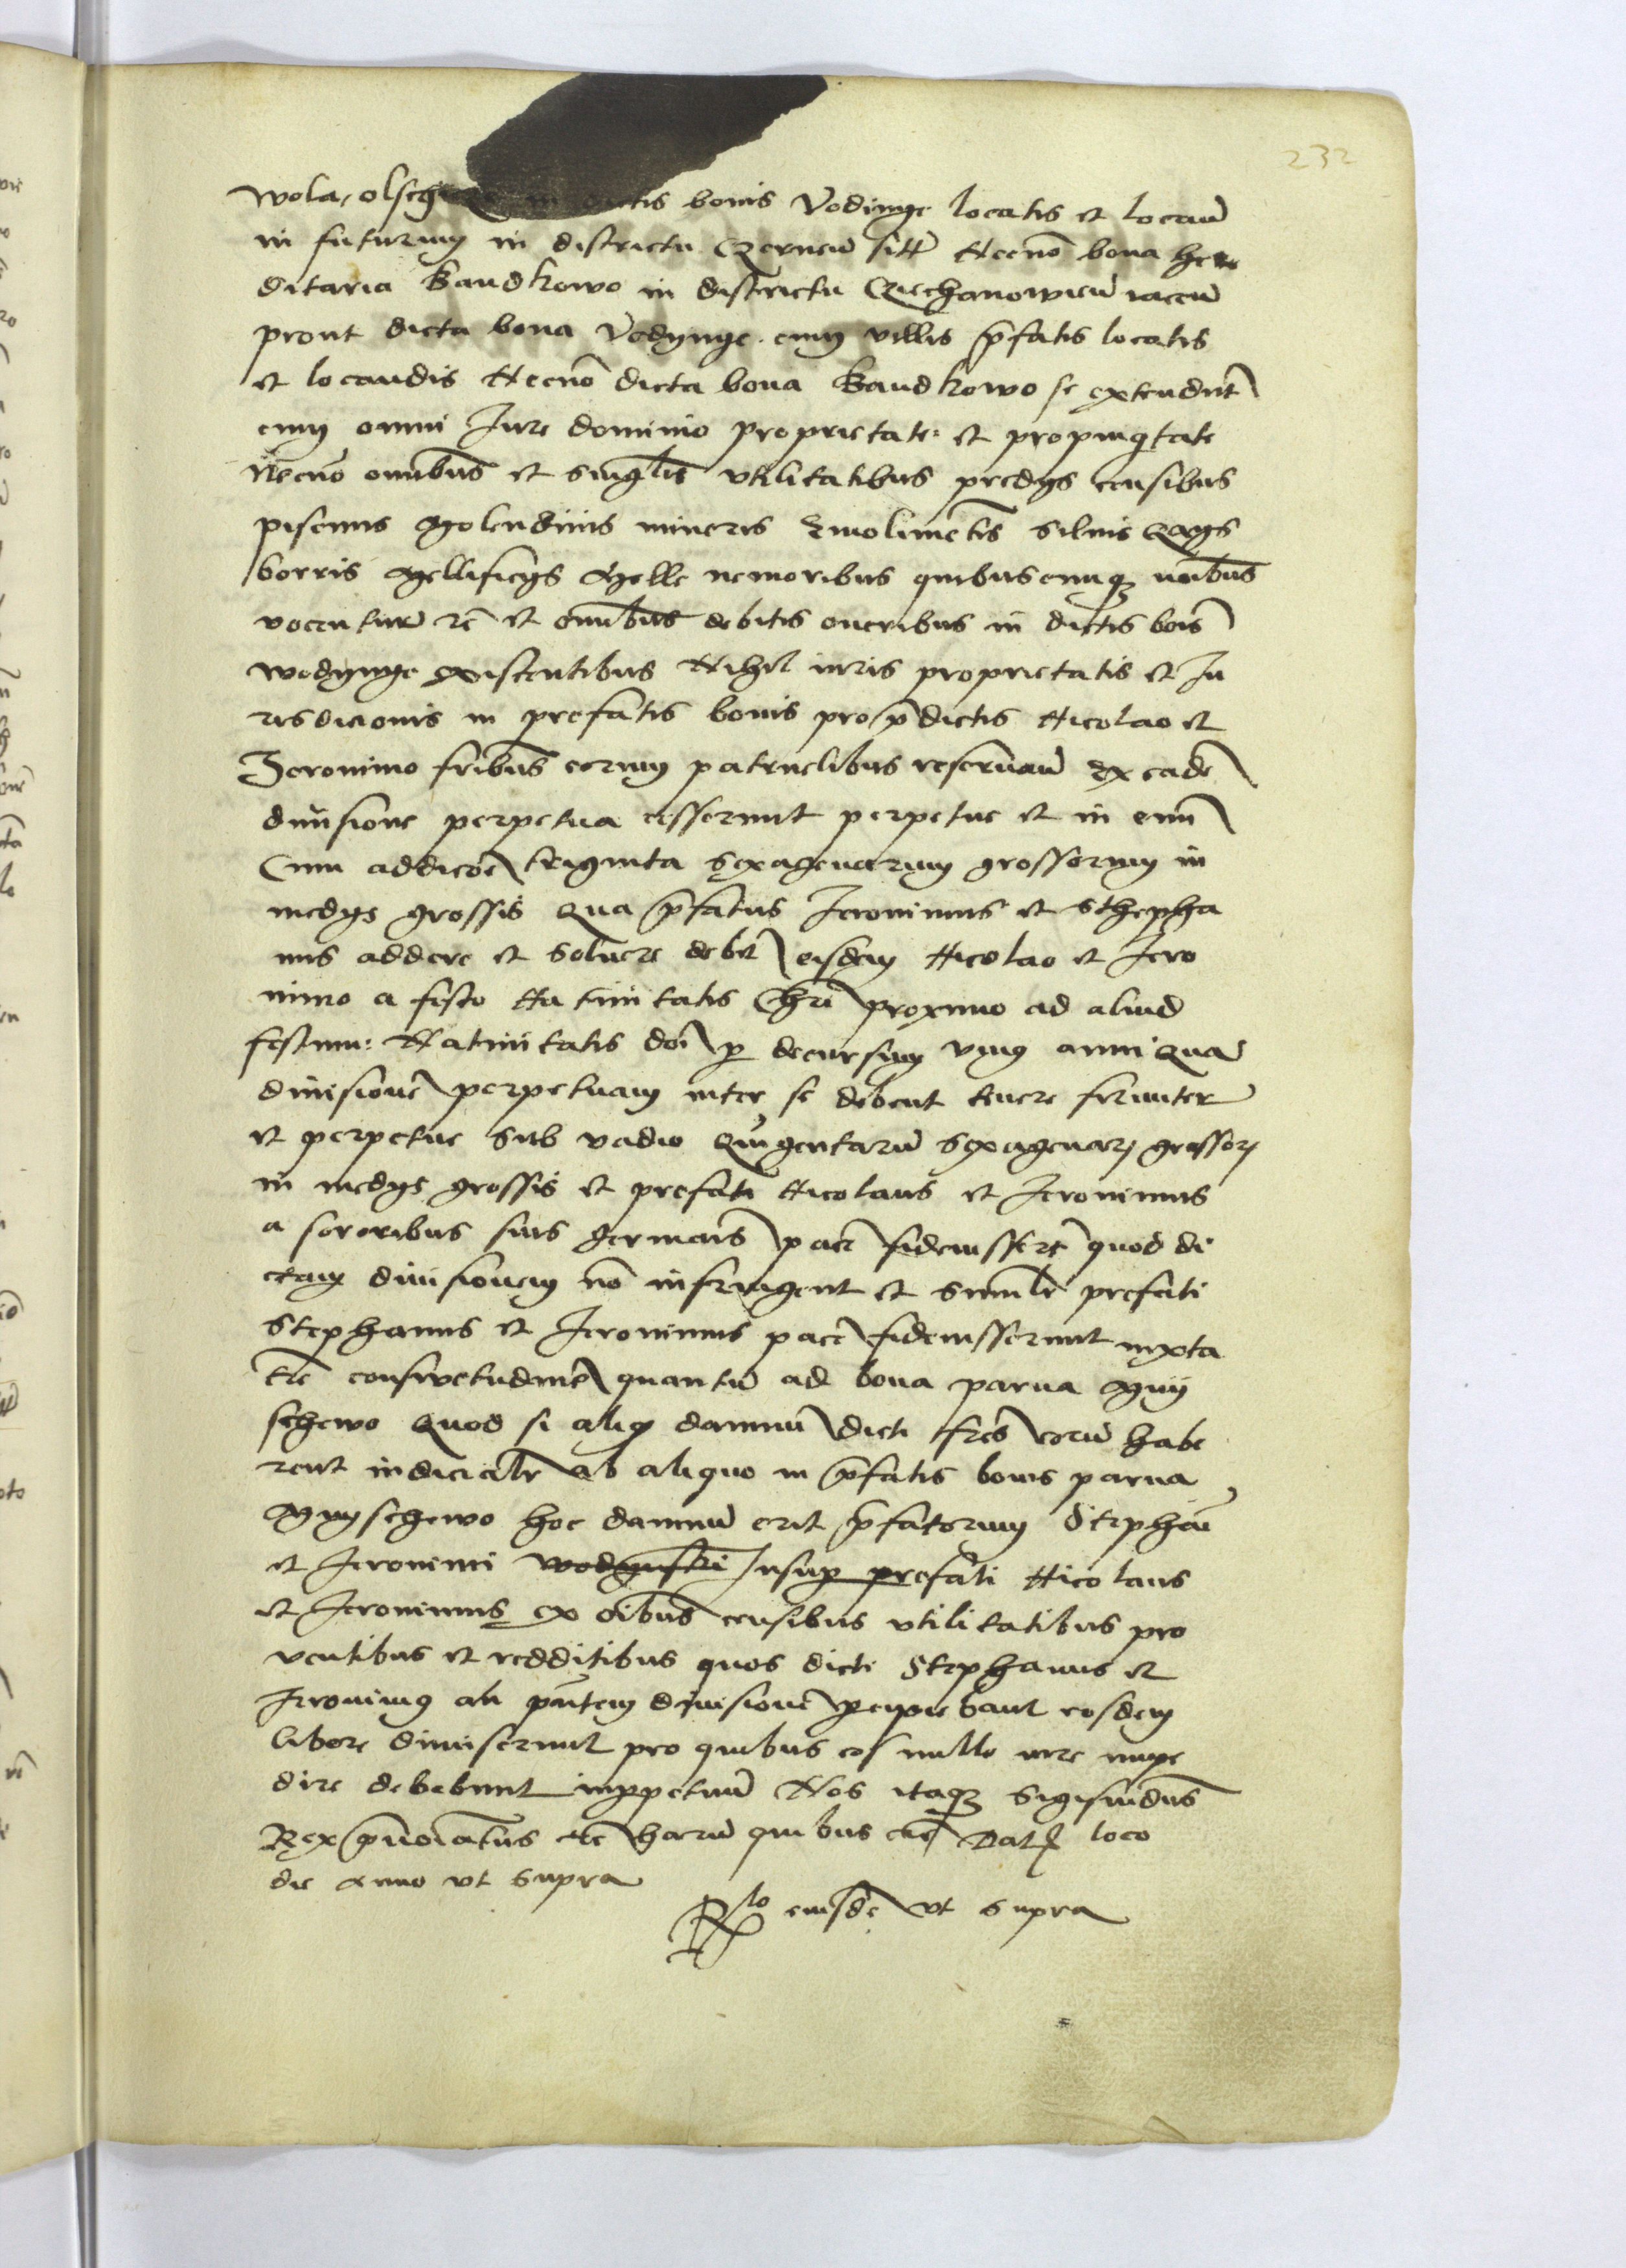 232
Wola, olsch in dictis bonis Vodinge locatis et locan̄
in futurum in districtu Czernen̄ sitt̄ Necnō bona here
ditaria Bandkowo in districtu Cziechanowien̄ iacen̄
prout dicta bona Vodynge cum villis p̄fatis locatis
et locandis Necnō dicta bona Bandkowo se extendūt
cum omni Jure dominio proprietate et propinq̄tate
Necnō omībus et singl̄is vtilitatibus predys censibus
piscinis Molendinis mineris Emolimētis siluis Gays
borris Mellificys Melle nemoribus quibuscunq3 noībus
vocentur rē et omībus debitis oneribus in dictis bois
wodynge existentibus Nihil iuris proprietatis et Ju
risdicionis in prefatis bonis pro p̄dictis Nicolao et
Jeronimo frībus eorum patruelibus reseruan̄ Ex eadē
diuisione perpetua cesserunt perpetue et in euū
Cum addicōe triginta sexagenarum grossorum in
medys grossis Qua p̄fatus Jeronimus et Sthepha
nus addere et soluere debēt eisdem Nicolao et Jero
nimo a festo Natiuitatis Chrī proximo ad aliud
festum: Natiuitatis doī p decursum vnius anni Quā
diuisionē perpetuam inter se debent tenere firmiter
et perpetue sub vadio Quīgentarū sexagenar̄ grossor̄
in medys grossis et prefati Nicolaus et Jeronimus
a sororibus suis germaīs pacē fideiussert̄ quod di
ctam diuisionem nō infringent et simil̄r prefati
Stephanus et Jeronimus pacē fideiusserunt iuxta
tr̄e consuetudinē quantū ad bona parua Myy
schewo Quod si aliq damnū dicti fr̄es eorū habe
rent iudicial̄r ab aliquo in p̄fatis bonis parua
Myyschewo hoc damnū erit p̄fatorum Stephāi
et Jeronimi wodynski Insup prefati Nicolaus
et Jeronimus ex oībus censibus vtilitatibus pro
uentibus et redditibus quos dicti Stephanus et
Jeronimus an̄ pn̄tem diuisionē pcipiebant eosdem
libere dimiserunt pro quibus eos nullo iure impe
dire debebunt inppetuū Nos itaq3 Sigismūdus
Rex p̄noīatus etc̄ harū quibus etc̄ Dat̄ loco
die anno vt supra
Rlo eiusdē vt supra